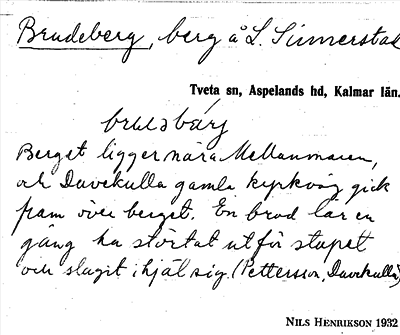 Brudeberg, berg å L. Simmerstad
Tveta sn, Aspelands hd, Kalmar län.
brudbärj
Berget ligger nära Mellanmaren,
och Davekulla gamla kyrkväg gick
fram över berget. En brud lär en
gång ha störtat utför stupet
och slagit ihjäl sig. (Pettersson, Davekulla)
NILS HENRIKSON 1932